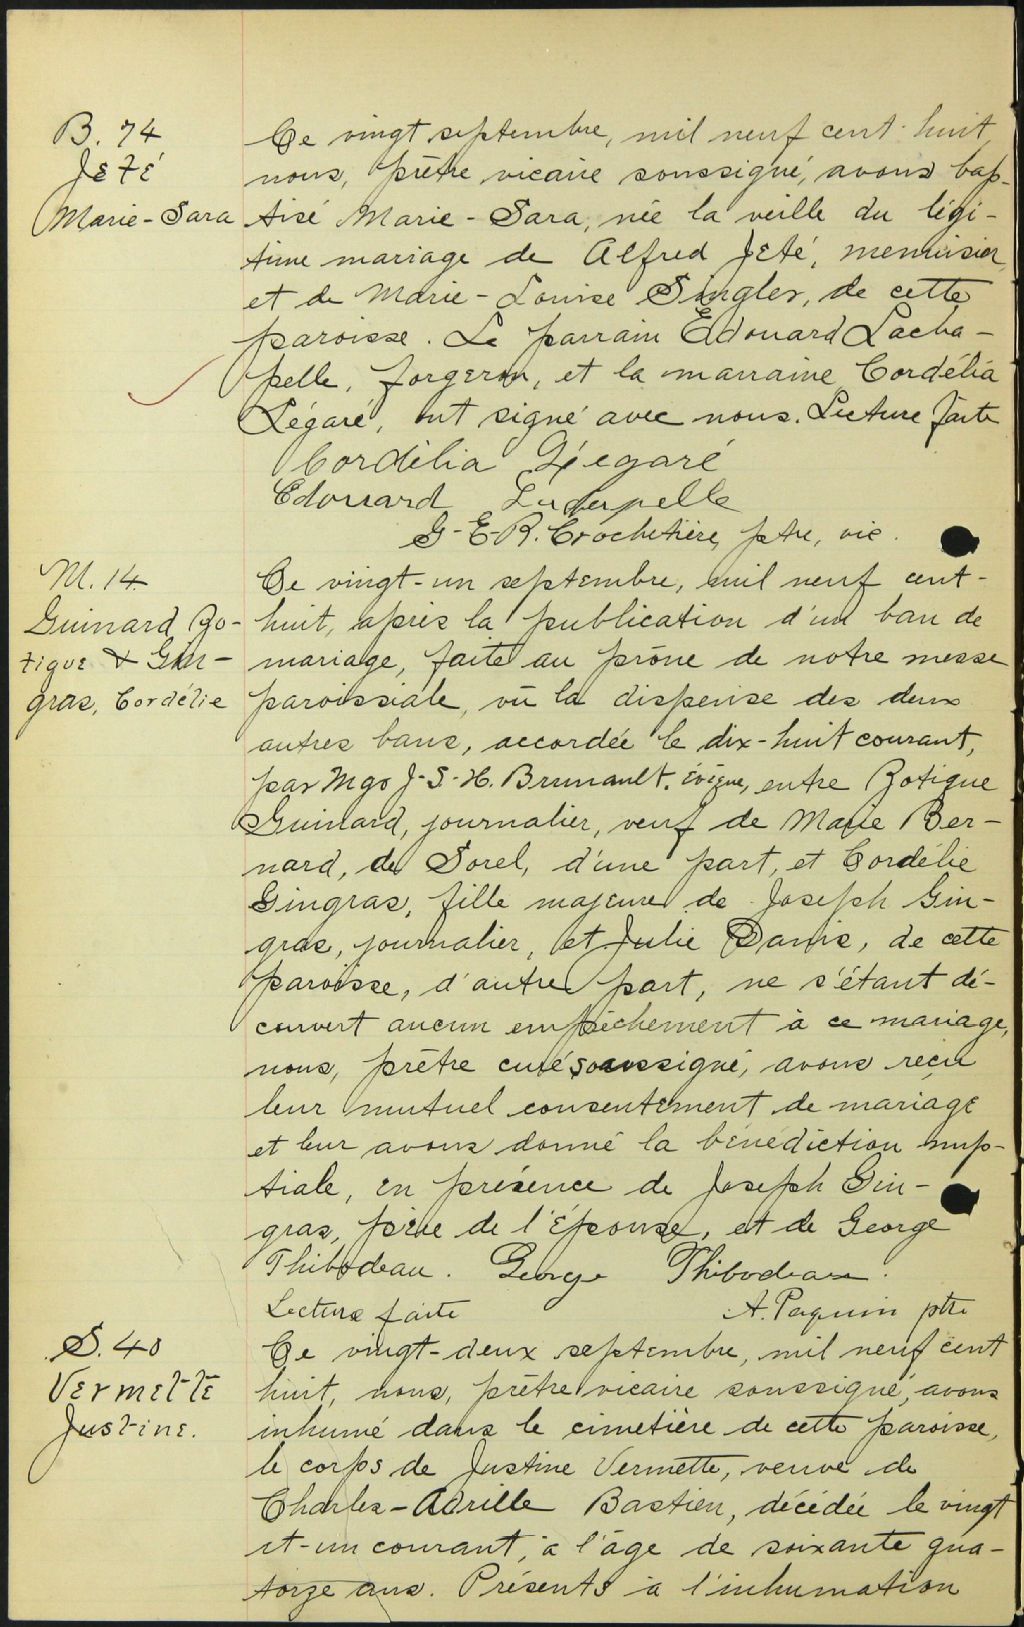 B. 74
Jeté
Marie-Sara
Ce vingt septembre, mil neuf cent huit,
nous, prêtre vicaire soussigné, avons bap-
tisé Marie-Sara, née la veille du légi-
time mariage de Alfred Jeté, menuisier,
et de Marie-Louise Singler, de cette
paroisse. Le parrain Edouard Lacha-
pelle, forgeron, et la marraine Cordélia
Légaré, ont signé avec nous. Lecture faite
Cordélia Légaré
Edouard
G-E-R. Crochetière, ptre, vic.
M. 14
Guinard Zo-
tique & Gin-
gras, Cordélie
Ce vingt-un septembre, mil neuf cent-
huit, après la publication d'un ban de
mariage, faite au prône de notre messe
paroissiale, vû la dispense des deux
autres bans, accordée le dix-huit courant,
par Mgr J-S-H. Brunault, évêque, entre Zotique
Guinard, journalier, veuf de Marie Ber-
nard, de Sorel, d'une part, et Cordélie
Gingras, fille majeure de Joseph Gin-
gras, journalier, et Julie Danis, de cette
paroisse, d'autre part, ne s'étant dé-
couvert aucun empêchement à ce mariage,
nous, prêtre curé soussigné, avons reçu
leur mutuel consentement de mariage
et leur avons donné la bénédiction nup-
tiale, en présence de Joseph Gin-
gras, père de l'épouse, et de George
Thibodeau. George Thibodeau.
Lecture faite A. Paquin ptre
S. 40
Vermette
Justine.
Ce vingt-deux septembre, mil neuf cent
huit, nous, prêtre vicaire soussigné, avons
inhumé dans le cimetière de cette paroisse,
le corps de Justine Vermette, veuve de
Charles-Adrille Bastien, décédée le vingt
et-un courant, à l'âge de soixante qua-
torze ans. Présents à l'inhumation